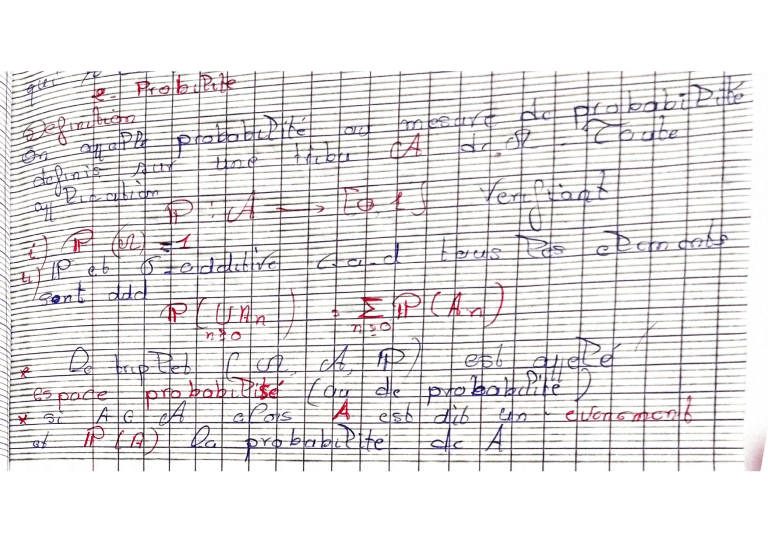 e- Probilité
Définition
On appelle probabilité ou mesure de probabilité
définie sur une tribu A de Ω. Toute
application
P : A → [0,1] Verifiant
i) P (Ω) = 1
ii) P et σ-additive c-a-d tous les elements
sont ddd
P( ∪ An ) = Σ P(An)
n≥0 n≥0
* Le triplet (Ω, A, P) est appelé
espace probabilisé (ou de probabilité)
* si A ∈ A alors A est dit un evenement
et P(A) la probabilité de A